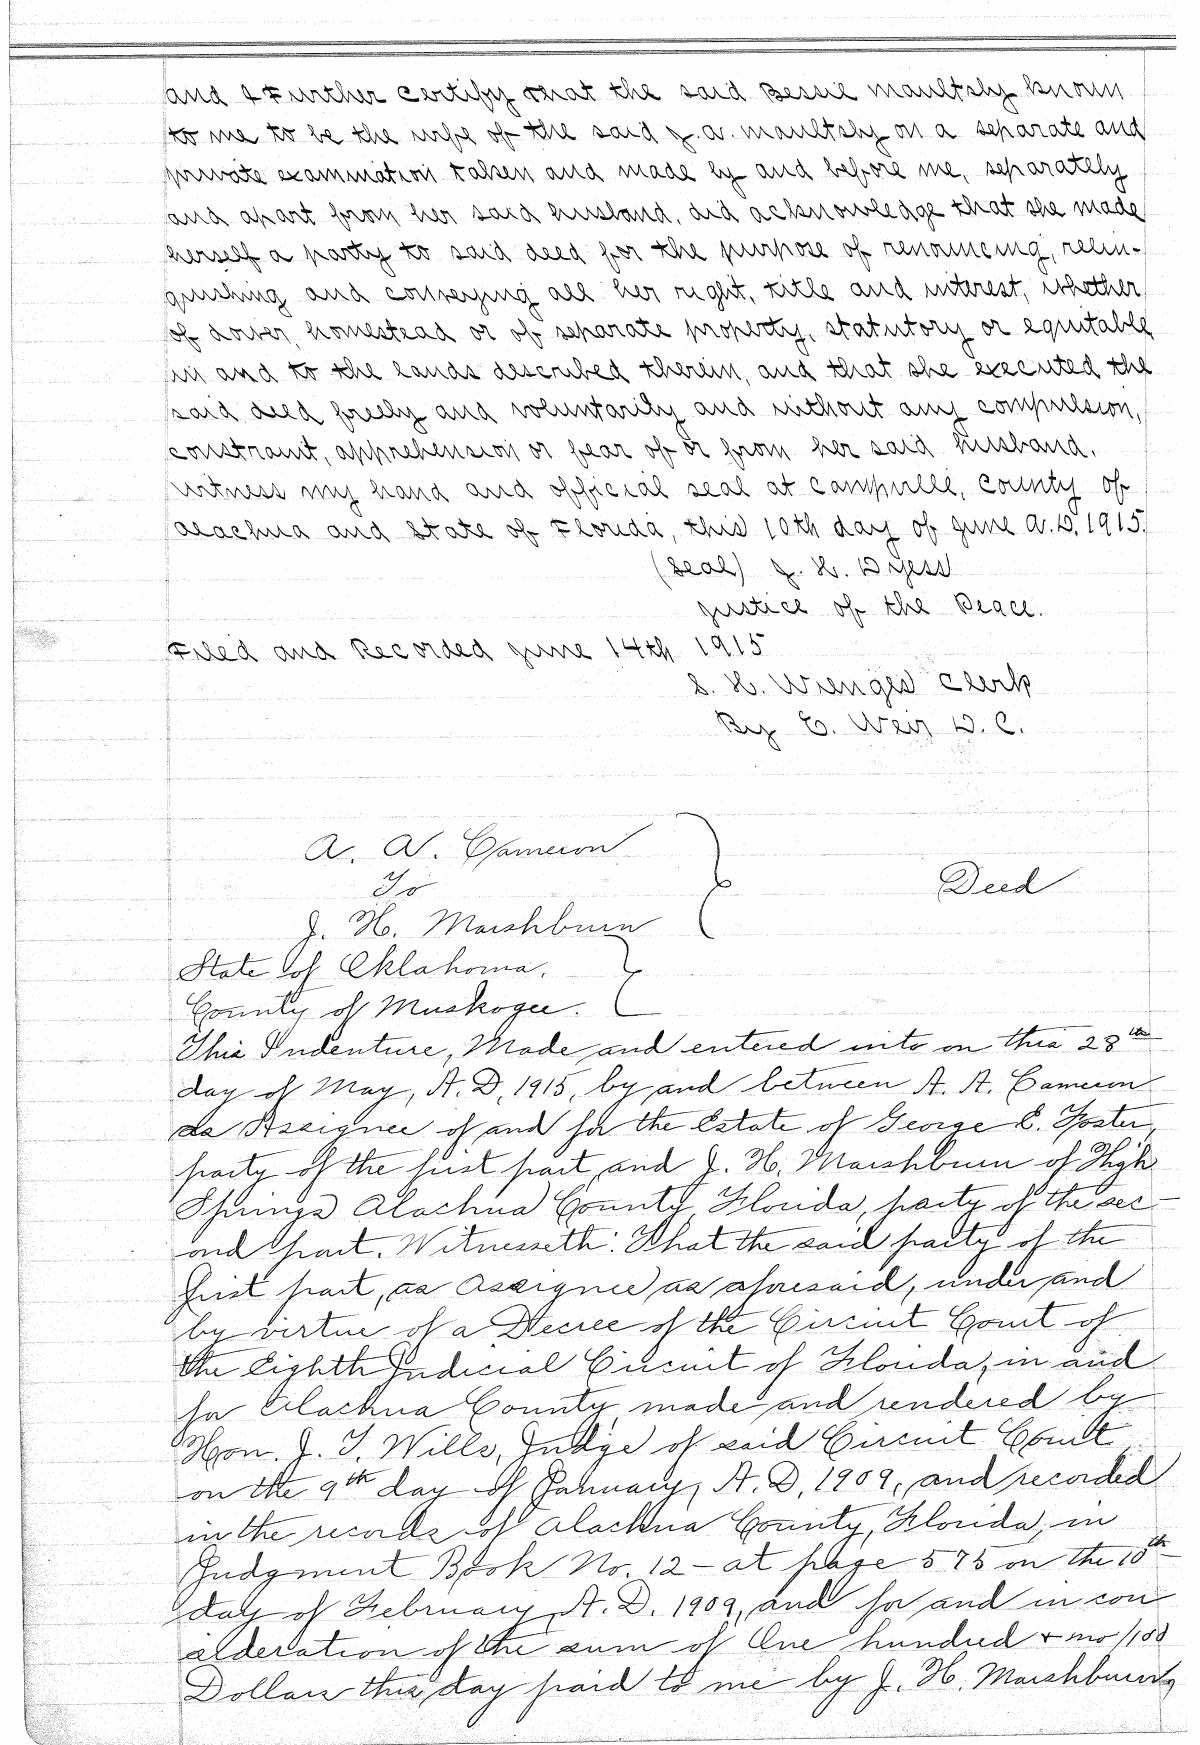 and I Further certify that the said Bessie Maultsby known
to me to be the wife of the said J. A. Maultsby on a separate and
private examination taken and made by and before me, separately
and apart from her said husband, did acknowledge that she made
herself a party to said deed for the purpose of renouncing, relin-
quishing and conveying all her right, title and interest, whether
of dower, homestead or of separate property, statutory or equitable
in and to the lands described therein, and that she executed the
said deed freely and voluntarily and without any compulsion,
constraint, apprehension or fear of or from her said husband.
Witness my hand and official seal at Campville, County of
Alachua and State of Florida, this 10th day of June A.D. 1915.
(Seal) J. H. Dyess
Justice of the Peace.
Filed and Recorded June 14th 1915
S. H. Wienges Clerk
By E. Weir D. C.
A. A. Cameron
To
Deed
J. H. Marshburn
State of Oklahoma.
County of Muskogee.
This Indenture, Made and entered into on this 28th
day of May, A. D, 1915, by and between A. A. Cameron
as Assignee of and for the Estate of George E. Foster,
party of the first part, and J. H. Marshburn of High
Springs Alachua County, Florida, party of the sec-
ond part. Witnesseth: That the said party of the
first part, as Assignee as aforesaid, under and
by virtue of a Decree of the Circuit Court of
the Eighth Judicial Circuit of Florida, in and
for Alachua County, made and rendered by
Hon. J. T. Wills, Judge of said Circuit Court
on the 9th day of January, A. D, 1909, and recorded
in the records of Alachua County, Florida, in
Judgment Book No. 12 - at page 575 on the 10th
day of February, A. D. 1909, and for and in con
sideration of the sum of One hundred + no/100
Dollars this day paid to me by J. H. Marshburn,